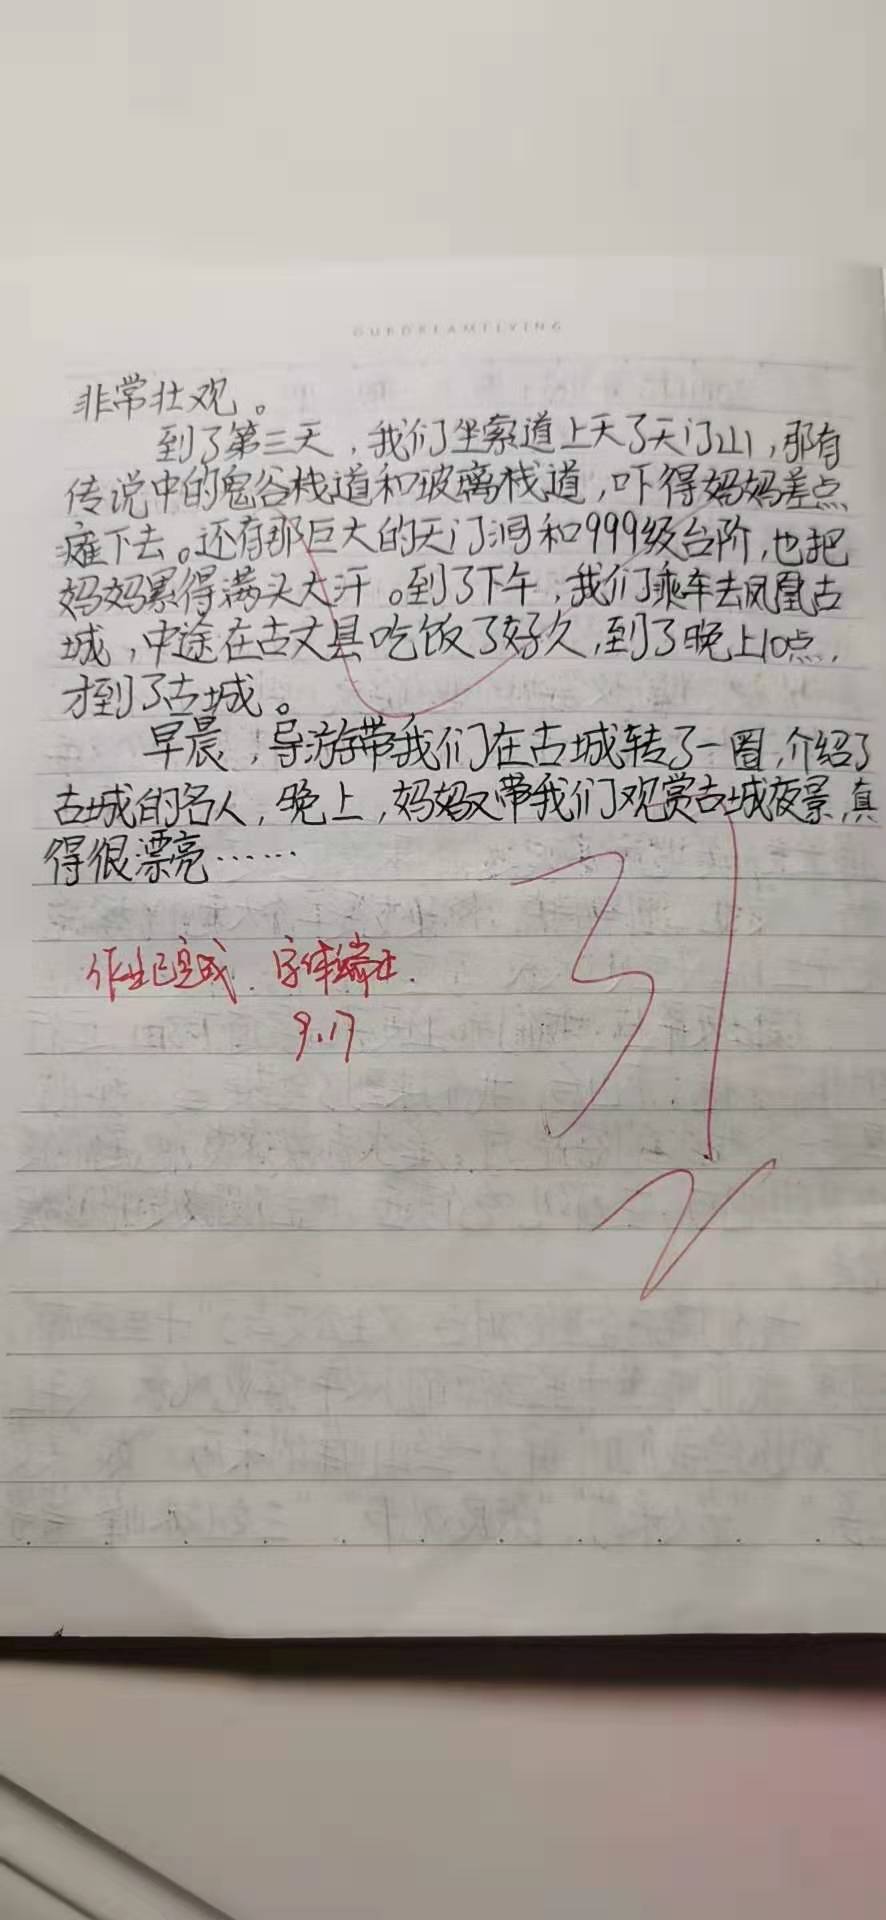 OURDREAMFLYING
非常壮观。
到了第三天，我们坐索道上天了天门山，那有
传说中的鬼谷栈道和玻璃栈道，吓得妈妈差点
瘫下去。还有那巨大的天门洞和999级台阶，也把
妈妈累得满头大汗。到了下午，我们乘车去凤凰古
城，中途在古丈县吃饭了好久，到了晚上10点，
才到了古城。
早晨，导游带我们在古城转了一圈，介绍了
古城的名人，晚上，妈妈又带我们观赏古城夜景，真
得很漂亮……
作业已完成．字体端正．
9.17